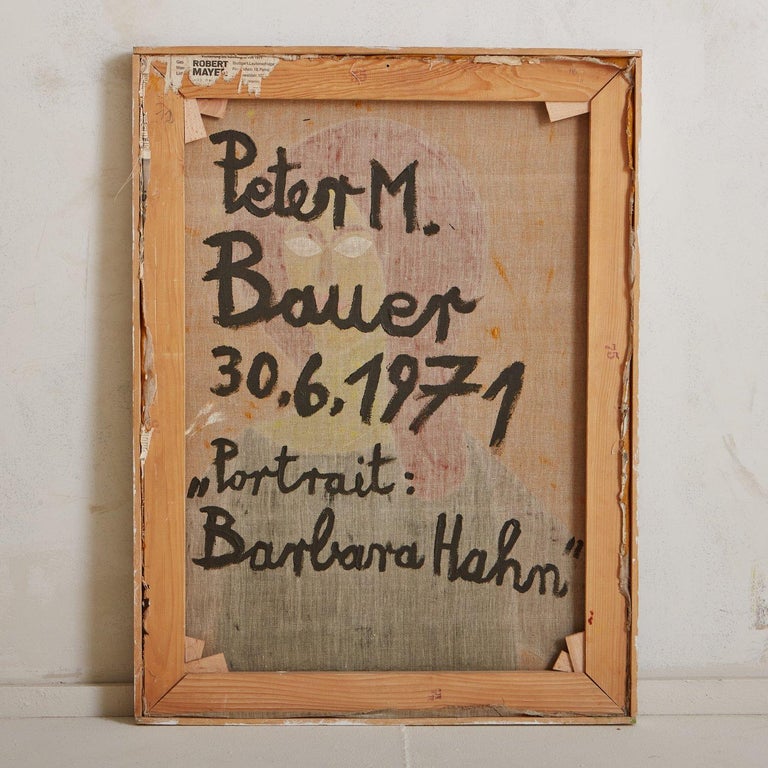 ROBERT
MAYE
Peter M.
Bauer
30.6.1971
„Portrait:
Barbara Hahn"
75